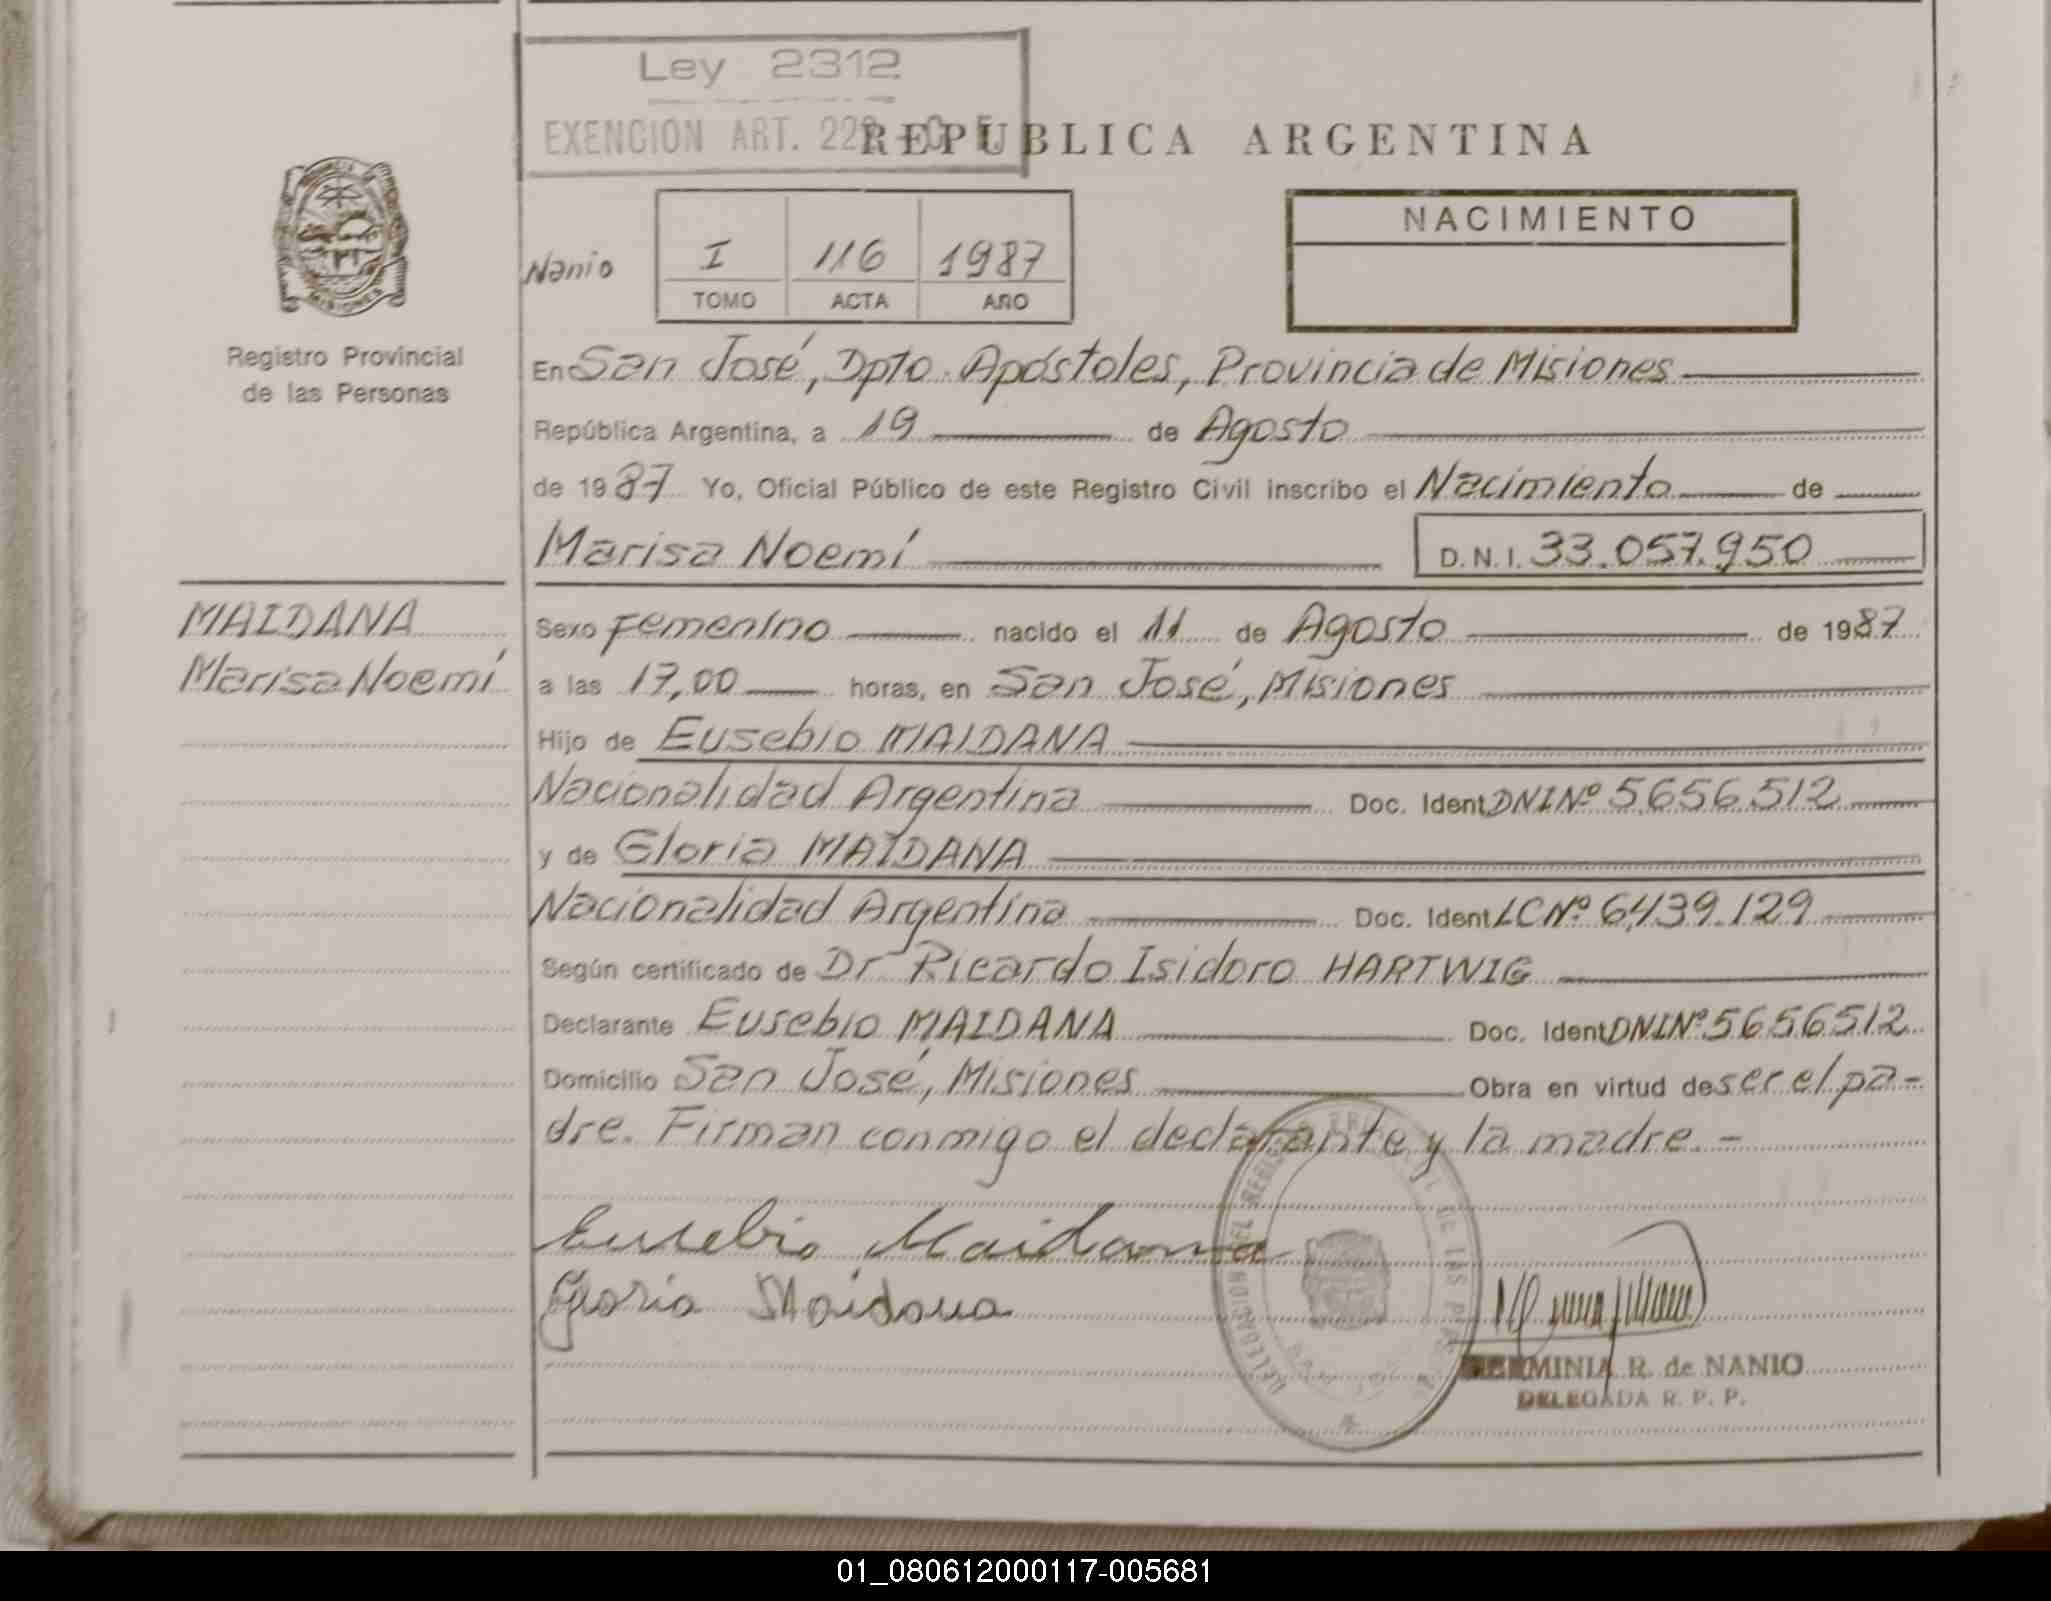 Ley 2312
EXENCION ART. 22
REPUBLICA ARGENTINA
NACIMIENTO
Nanio
I 116 1987
TOMO ACTA AÑO
PROVINCIA
MISIONES
Registro Provincial
de las Personas
En San José, Dpto. Apóstoles, Provincia de Misiones
República Argentina, a 19 de Agosto
de 1987 Yo, Oficial Público de este Registro Civil inscribo el Nacimiento de
Marisa Noemí D.N.I. 33.057.950
MAIDANA
Marisa Noemí
Sexo Femenino nacido el 11 de Agosto de 1987
a las 17,00 horas, en San José, Misiones
Hijo de Eusebio MAIDANA
Nacionalidad Argentina Doc. Ident DNI Nº 5.656.512
y de Gloria MAIDANA
Nacionalidad Argentina Doc. Ident LC Nº 6,439.129
Según certificado de Dr Ricardo Isidoro HARTWIG
Declarante Eusebio MAIDANA Doc. Ident DNI Nº 5.656.512
Domicilio San José, Misiones Obra en virtud de ser el pa-
dre. Firman conmigo el declarante y la madre.-
Eusebio Maidana
Gloria Maidana
DELEGACION DEL REGISTRO DE LAS
HERMINIA R. de NANIO
DELEGADA R. P. P.
01_080612000117-005681